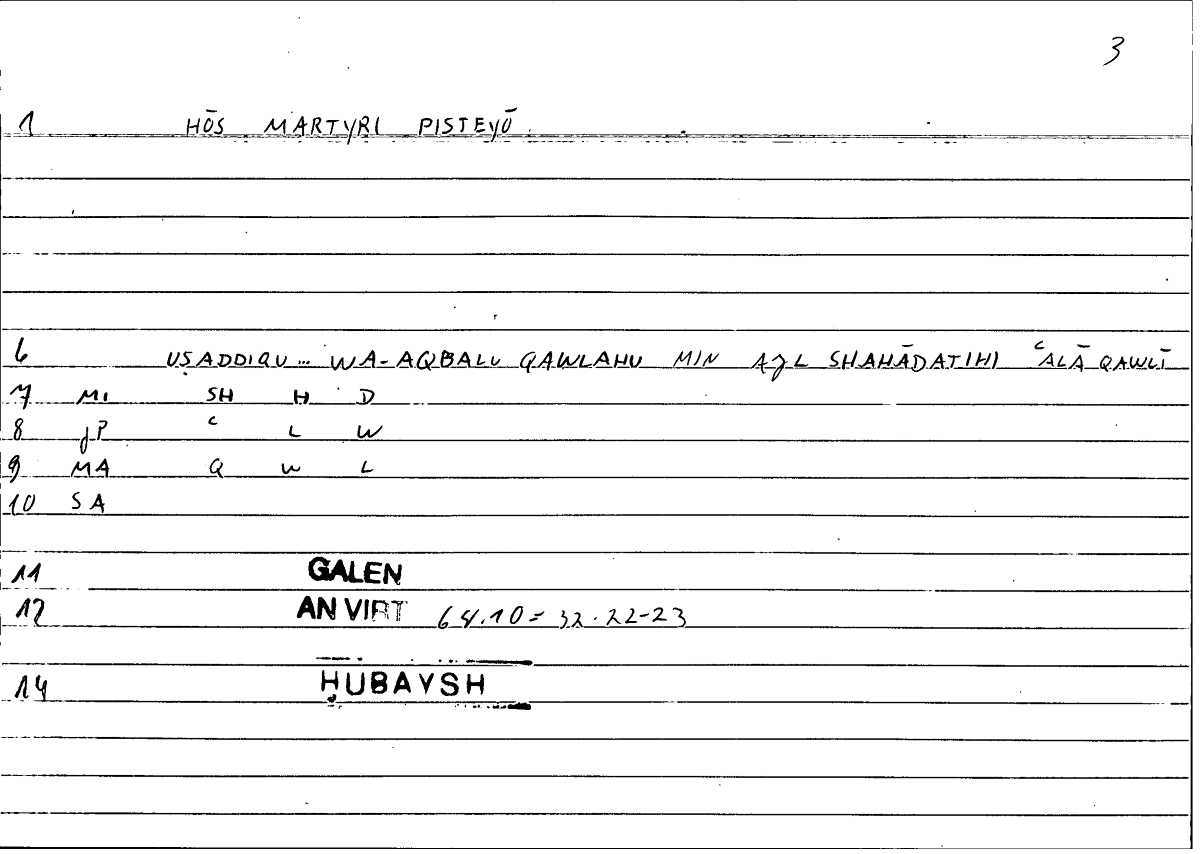 3
1 HŌS MARTYRI PISTEYŌ
6 UṢADDIQU... WA-AQBALU QAWLAHU MIN AJL SHAHĀDATIHI ʿALĀ QAWLĪ
7 MI SH H D
8 JP ʿ L W
9 MA Q W L
10 SA
11 GALEN
12 AN VIRT 64.10 = 32.22-23
14 ḤUBAYSH